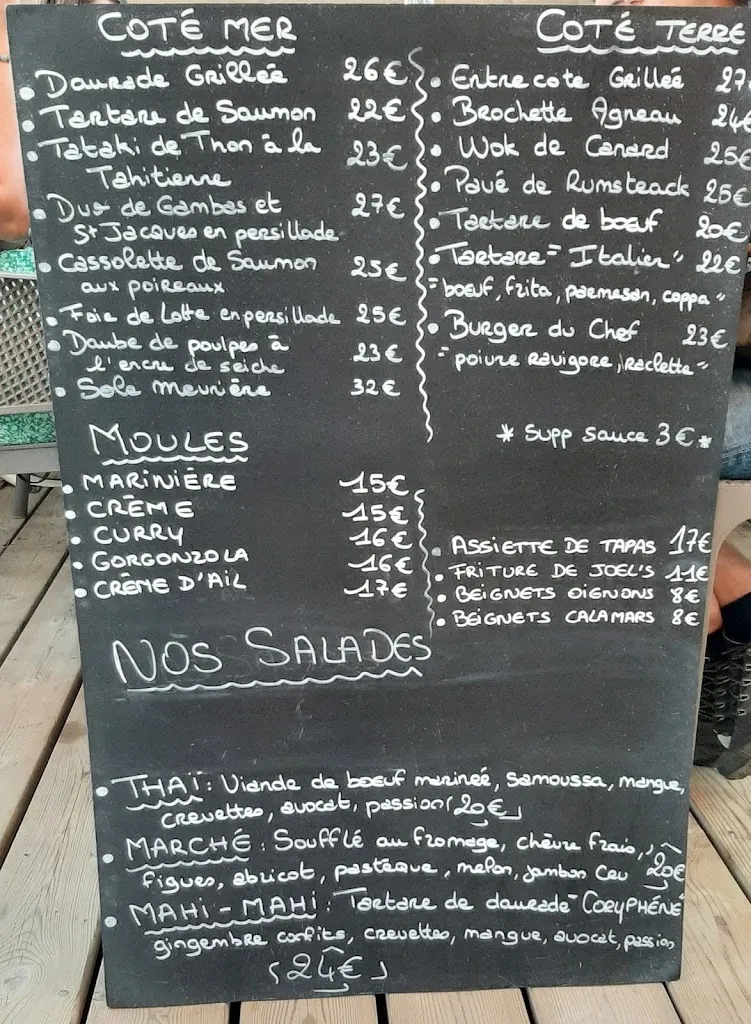 COTÉ MER
• Daurade Grillée 26€
• Tartare de Saumon 22€
• Tataki de Thon à la 23€
Tahitienne
• Duo de Gambas et 27€
St Jacques en persillade
• Cassolette de Saumon 25€
aux poireaux
• Foie de Lotte en persillade 25€
• Daube de poulpes à 23€
l'encre de seiche
• Sole meunière 32€
COTÉ TERRE
• Entrecote Grillée 27
• Brochette Agneau 24€
• Wok de Canard 25€
• Pavé de Rumsteack 25€
• Tartare de boeuf 20€
• Tartare "Italien" 22€
"boeuf, frita, parmesan, coppa"
• Burger du Chef 23€
"poivre ravigore, raclette"
* Supp sauce 3€ *
MOULES
• MARINIÈRE 15€
• CRÈME 15€
• CURRY 16€
• GORGONZOLA 16€
• CRÈME D'AIL 17€
• ASSIETTE DE TAPAS 17€
• FRITURE DE JOEL'S 11€
• BEIGNETS OIGNONS 8€
• BEIGNETS CALAMARS 8€
NOS SALADES
• THAÏ : Viande de boeuf marineé, samoussa, mangue,
crevettes, avocat, passion (20€)
• MARCHÉ : Soufflé au fromage, chèvre frais,
figues, abricot, pasteque, melon, jambon cru 20€
• MAHI-MAHI : Tartare de daurade "CORYPHÉNE"
gingembre confits, crevettes, mangue, avocat, passion
(24€)